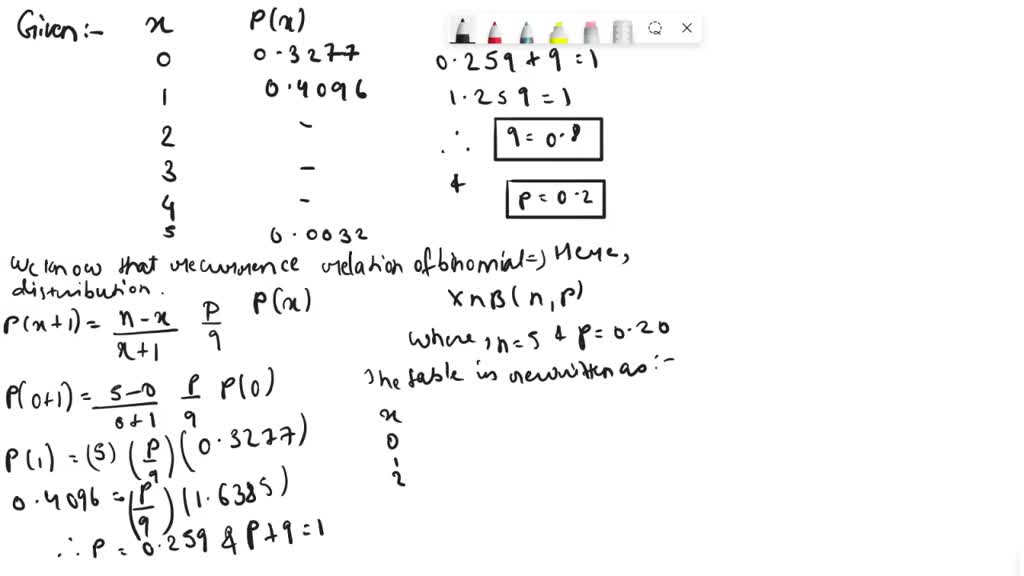 Given:- x P(x)
0 0.3277
1 0.4096
2 -
3 -
4 -
5 0.0032
We know that recurrence relation of binomial
distribution.
P(x+1) = n-x/x+1 p/q P(x)
P(0+1) = 5-0/0+1 p/q P(0)
P(1) = (5) (p/q) (0.3277)
0.4096 = (p/q) (1.6385)
∴ p = 0.25q & p+q=1
0.25q+q=1
1.25q=1
∴ q=0.8
& p=0.2
=) Here,
X~B(n,p)
where, n=5 & p=0.20
The table is rewritten as:-
x
0
1
2